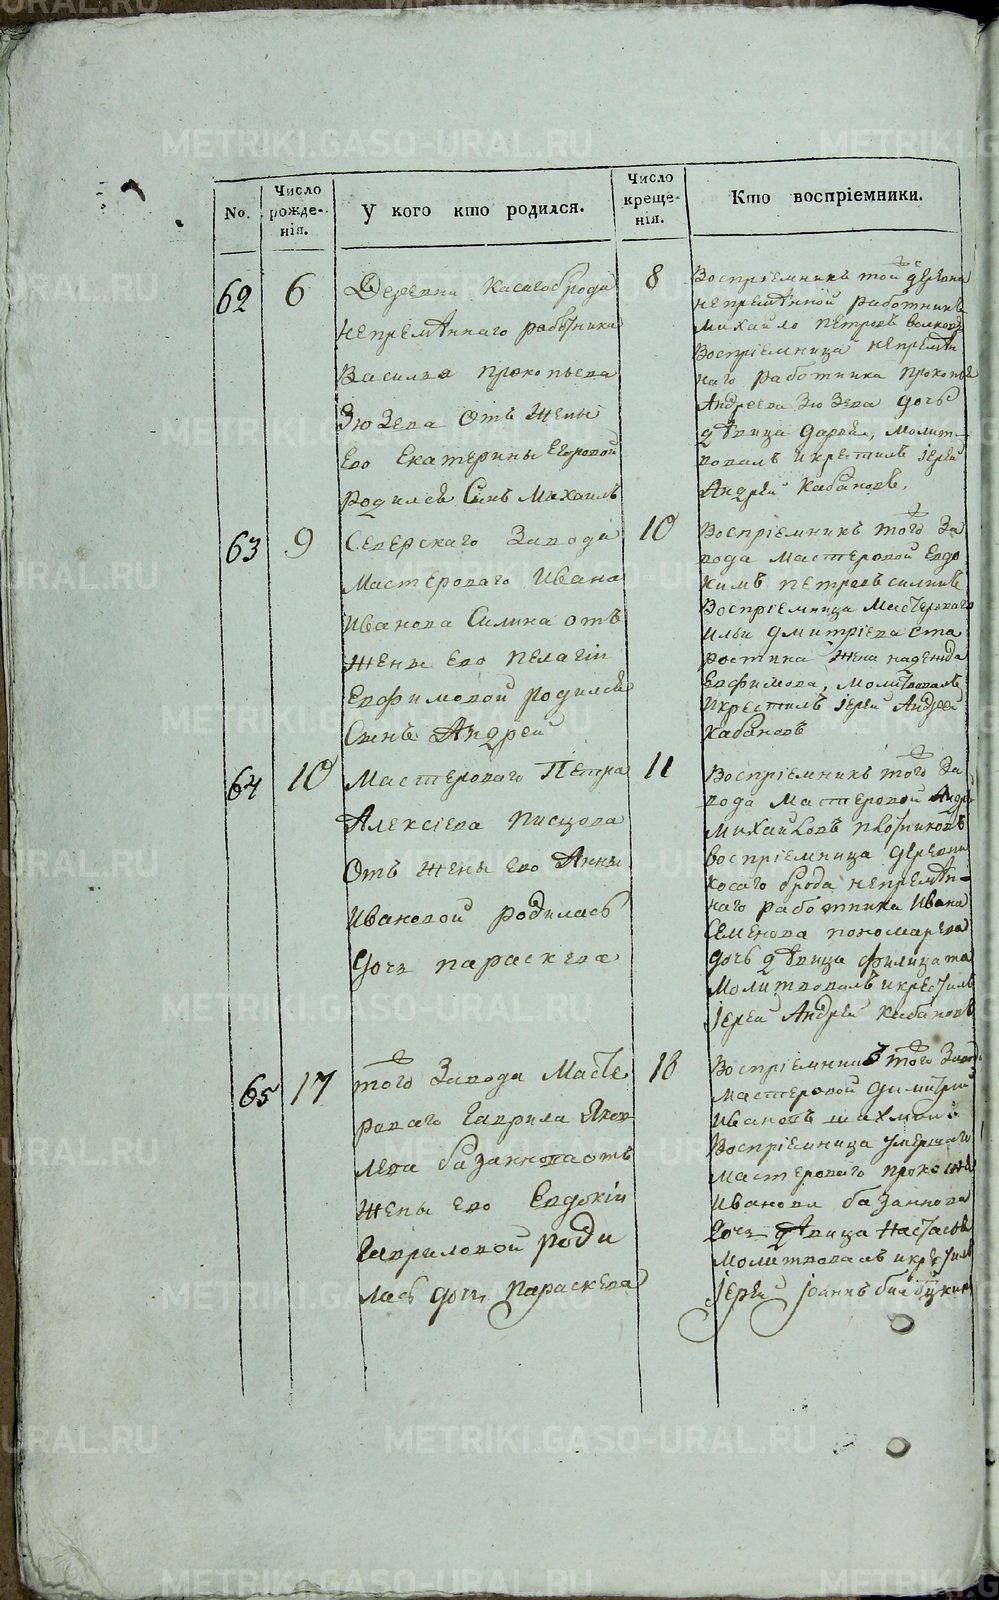 No.
Число рожде-нія.
У кого кто родился.
Число креще-нія.
Кто воспріемники.
62
6
Деревни Касагоброда
непремѣннаго работника
Василья прокопьева
Зюзева отъ жены
Его Екатерины Егоровой
родился Сынъ Михаилъ
8
Воспріемникъ той деревни
непремѣнной работникъ
михайло петровъ
Воспріемница непремѣн
наго работника прокопья
Андреева Зюзева дочь
дѣвица дарья, молит-
вовалъ и крестилъ іерей
Андрей Кабановъ.
63
9
Северскаго Завода
Мастероваго Ивана
Иванова Силина отъ
жены Его пелагіи
Евфимовой родился
Сынъ Андрей
10
Воспріемникъ того За
вода мастеровой Евдо
кимъ петровъ силинъ
Воспріемница мастероваго
ильи дмитріева ста
ростина жена надежда
Евфимова, молитвовалъ
икрестилъ іерей Андрей
Кабановъ
64
10
Мастероваго Петра
Алексіева писцова
Отъ жены Его Анны
Ивановой родилась
дочь параскева
11
Воспріемникъ того За
вода мастеровой Андрей
михайловъ плотниковъ
Воспріемница деревни
косаго брода непремѣн-
наго работника Ивана
Семенова пономарева
дочь дѣвица филицата
молитвовалъ икрестилъ
іерей Андрей кабановъ
65
17
того Завода Масте
роваго Гаврила Яков
лева базаннова отъ
жены Его Евдокіи
Гавриловой роди
лась дочь параскева
18
Воспріемникъ того Завод.
мастеровой димитрій
Ивановъ
Воспріемница умершаго
мастероваго прокопья
Иванова базаннова
дочь дѣвица Настасья
молитвовалъ икрестилъ
іерей іоаннъ
METRIKI.GASO-URAL.RU